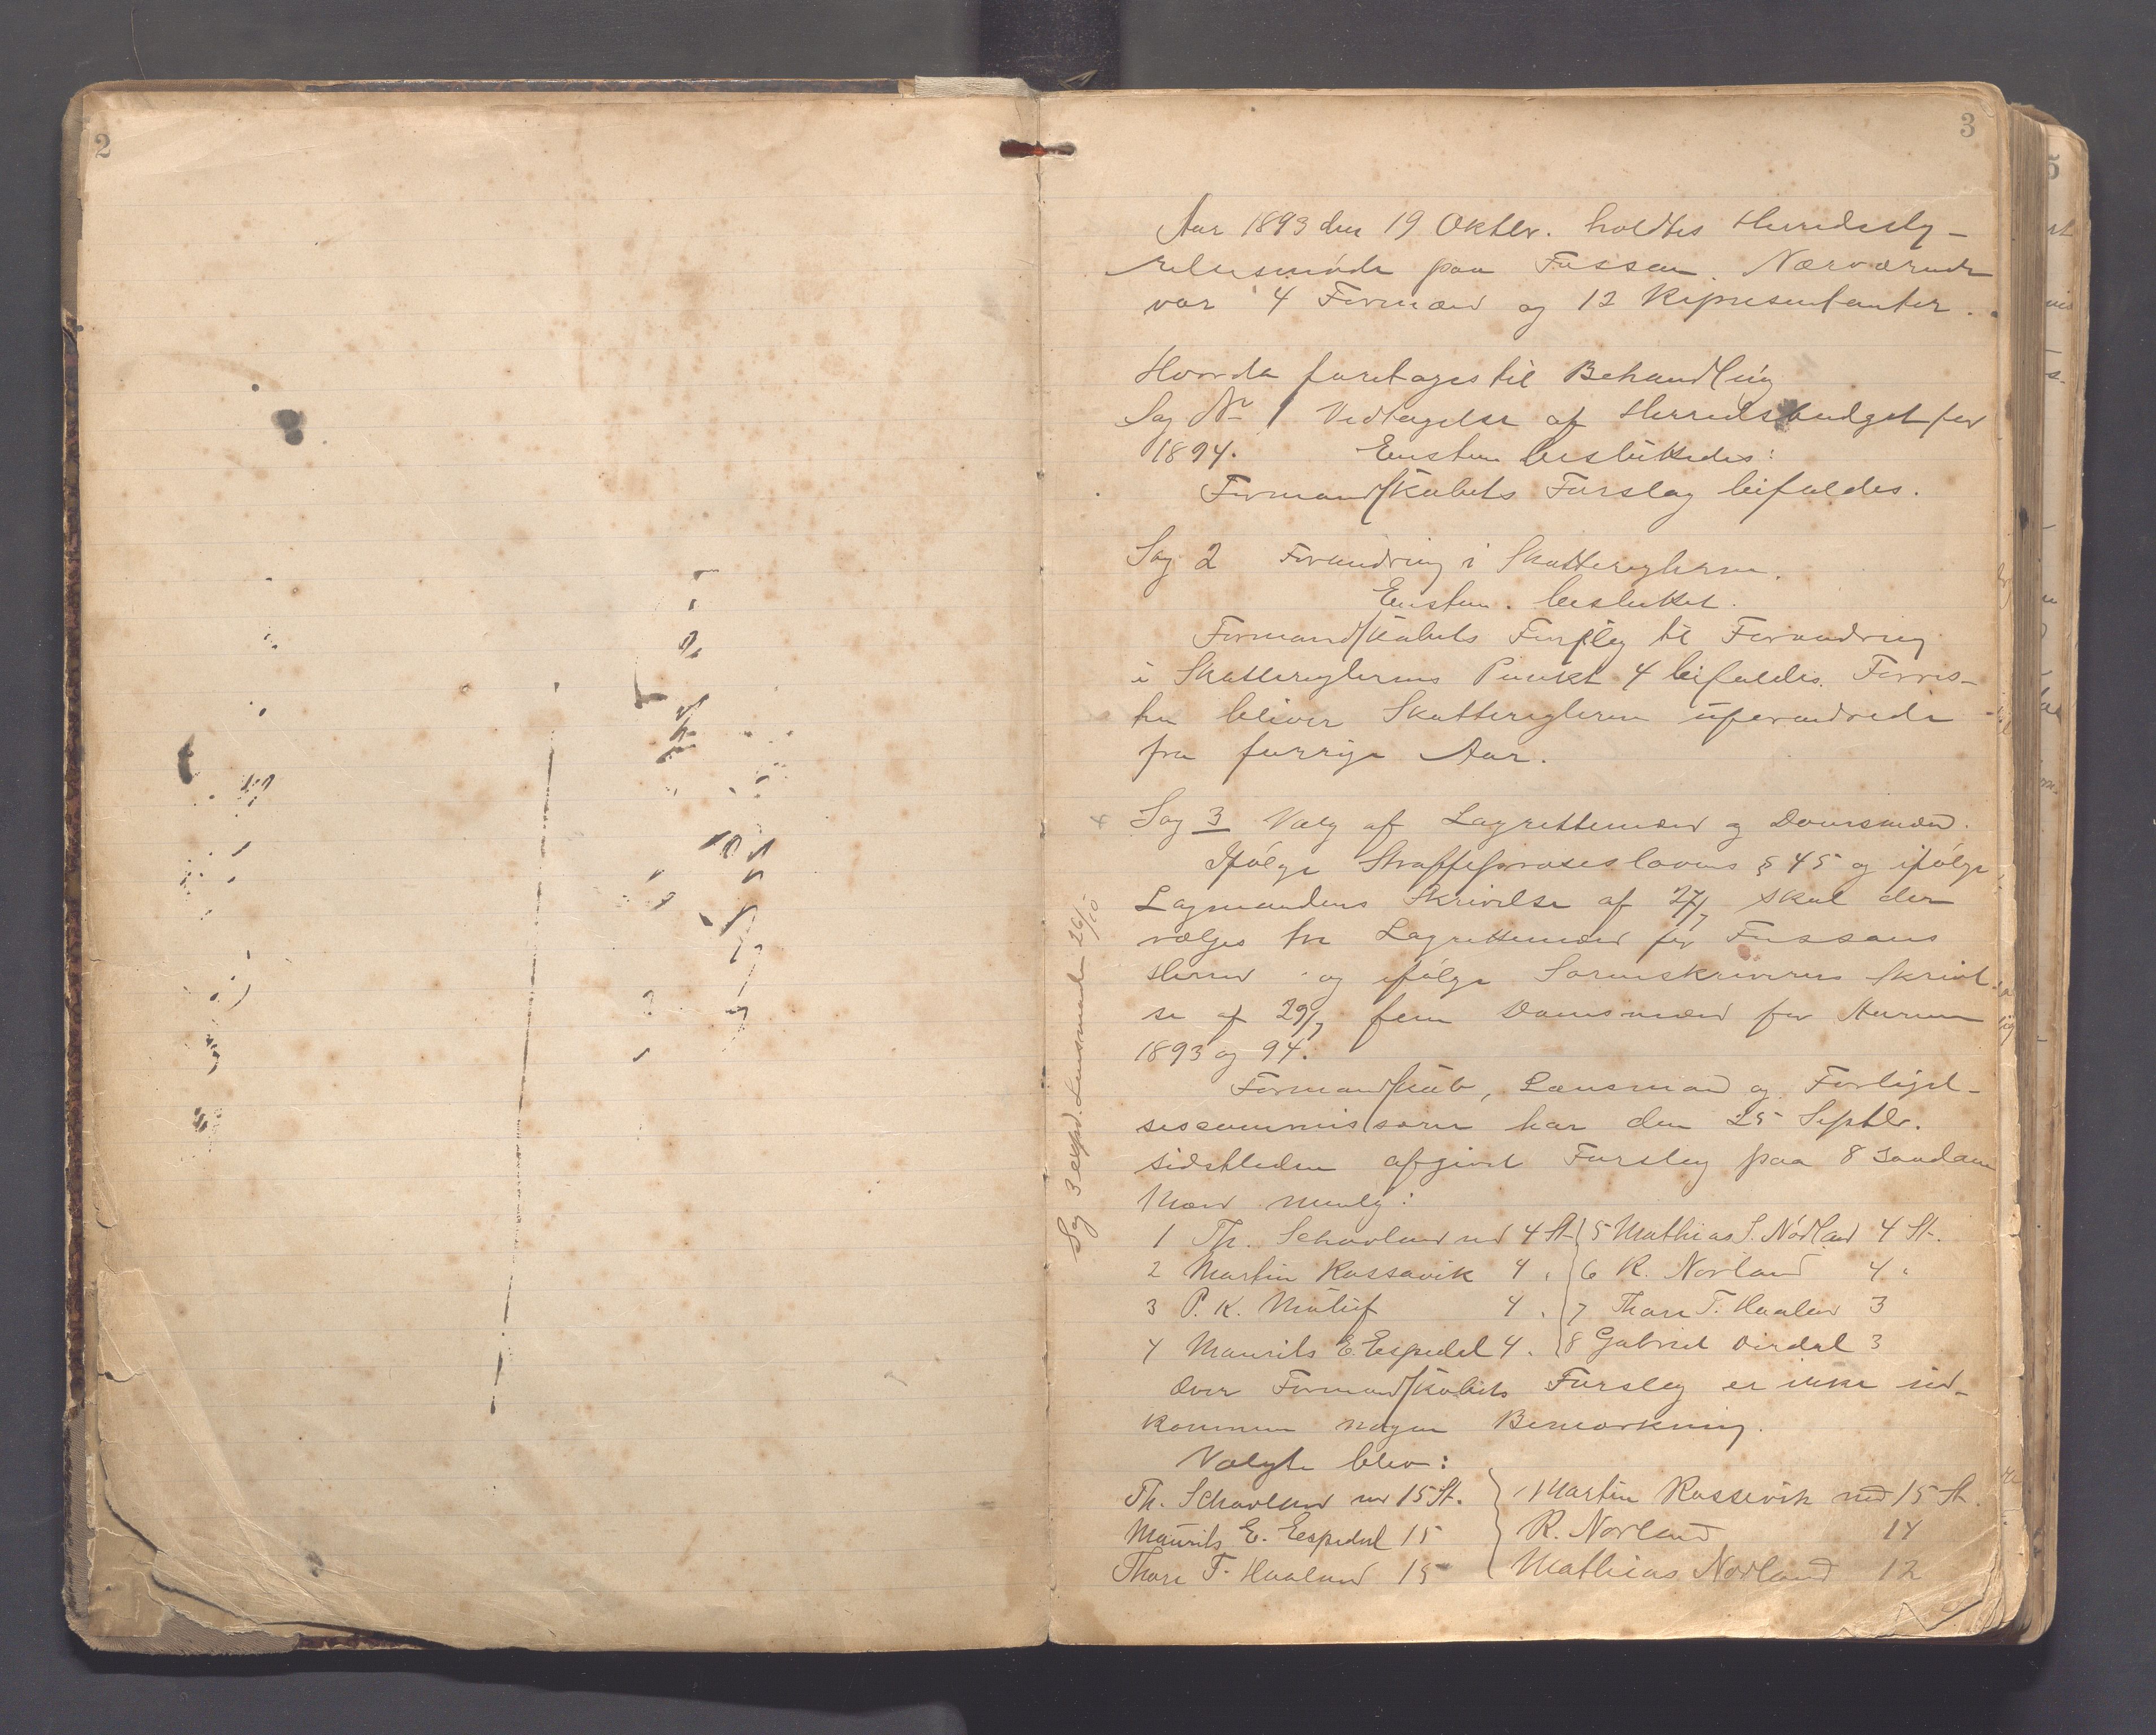 2
3
Aar 1893 den 19 Oktbr. holdtes Herredssty-
relsesmöde paa Fossan. Nærværende
var 4 Formænd og 12 Repræsentanter.
Hvorda foretages til Behandling
Sag Nr 1 Vedtagelse af Herredsbudget for
1894. Enstem besluttedes:
Formandskabets Forslag bifaldes.
Sag 2 Forandring i Skattereglerne.
Enstem. besluttet.
Formandskabets Forslag til Forandring
i Skattereglernes Punkt 4 bifaldes. Forres-
ten bliver Skattereglerne uforandrede
fra forrige Aar.
Sag 3 Valg af Lagrettemænd og Domsmænd.
Ifölge Straffeproseslovens § 45 og ifölge
Lagmandens Skrivelse af 27/7 skal der
vælges tre Lagrettemænd for Fossans
Herred og ifölge Sorenskriverens Skrivel-
se af 29/7 fem Domsmænd for Aarene
1893 og 94.
Formandskab, Lænsmand og Forligel-
sescommissærer har den 25 Septbr.
sidstleden afgivet Forslag paa 8 saadane
Mænd nemlig:
1 Th. Schavland med 4 St. 5 Mathias S. Nödland 4 St.
2 Martin Rossavik 4 " 6 R. Norland 4 "
3 P. K. 4 " 7 Thore T. Haaland 3
4 Maurits E. Espedal 4 " 8 Gabriel Dirdal 3
Over Formandskabets Forslag er ikke ind-
kommen nogen Bemærkning.
Valgte blev:
Th. Schavland med 15 St. Martin Rossevik med 15 St.
Maurits E. Espedal 15 R. Norland 14
Thore T. Haaland 15 Mathias Nödland 12
Sag 3 exspd. Lensmanden 26/10
5